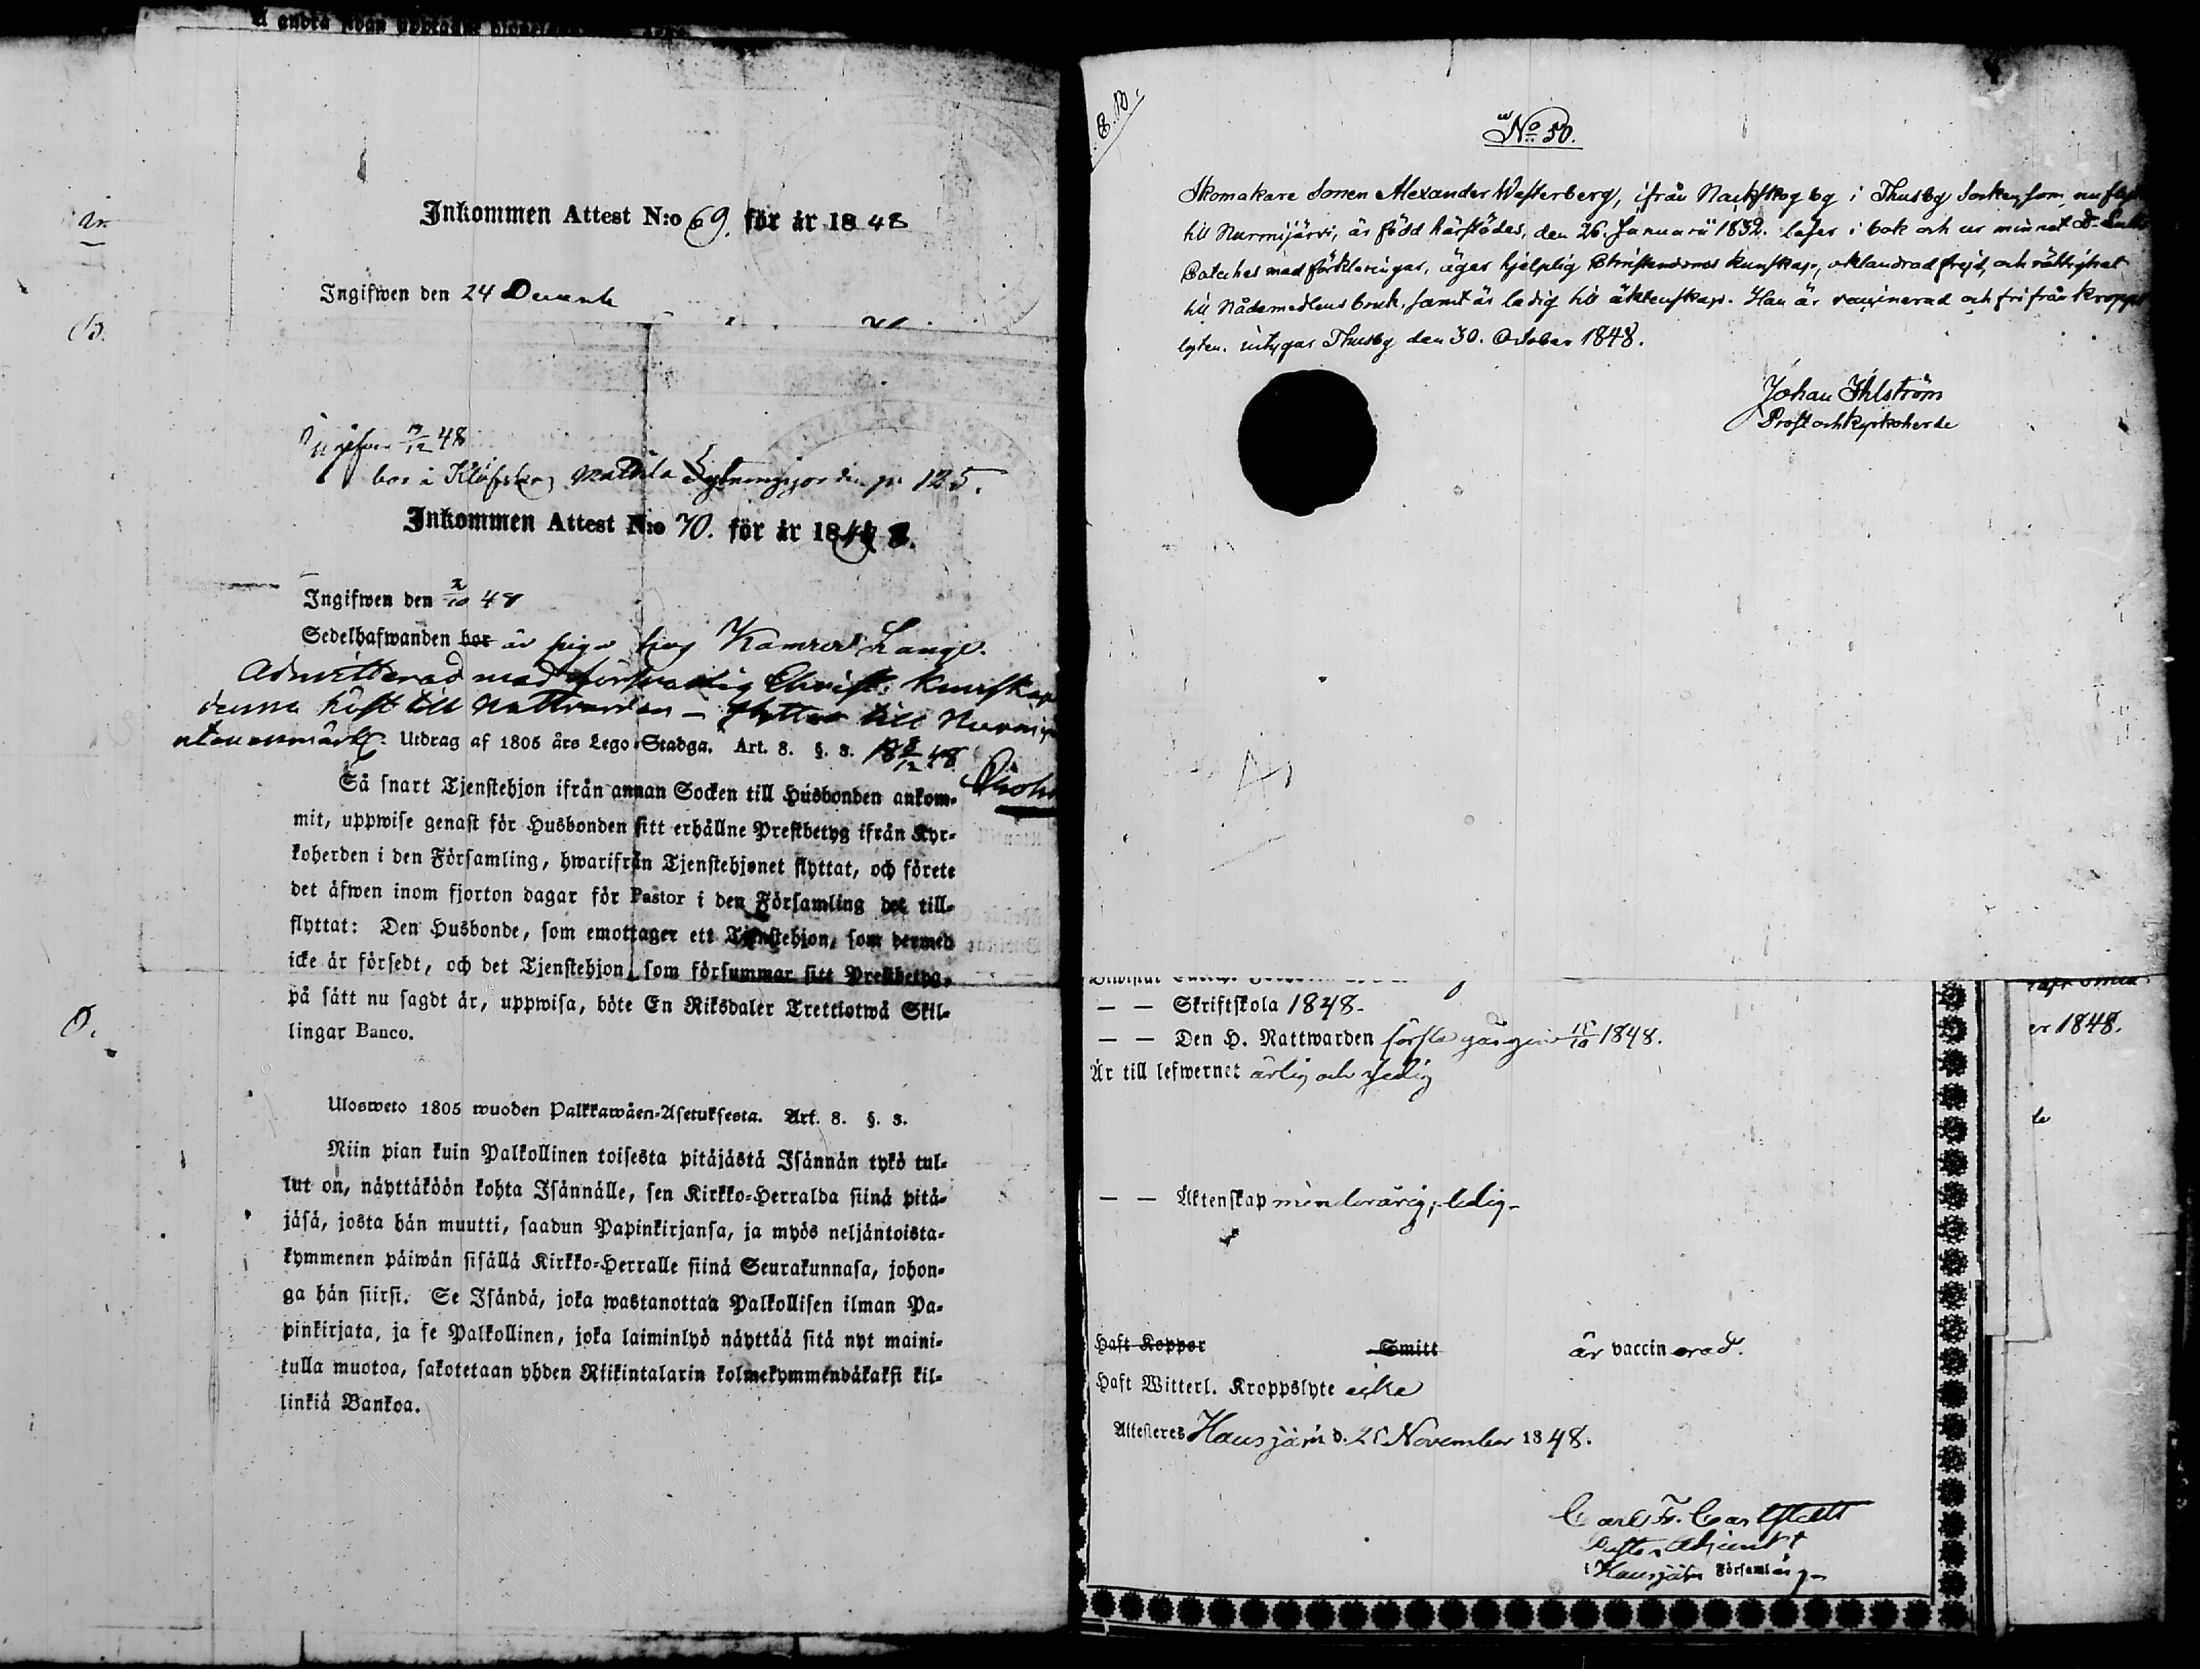 Inkommen Attest N:o 69. för år 1848
Ingifwen den 24
48
bor i Mathilda 125.
Inkommen Attest N:o 70. för år 1848.
Ingifwen den 48
Sedelhafwanden bor är piga hos Kamrer Lange.
Admitterad med Christ. Kunskap
denna höst till Nattvarden — flyttar till
utan anmärk.
Utdrag af 1805 års Lego-Stadga. Art. 8. §. 3.
Så snart Tjenstehjon ifrån annan Socken till Husbonden ankom-
mit, uppwise genast för Husbonden sitt erhållne Prestbetyg ifrån Kyr-
koherden i den Församling, hwarifrån Tjenstehjonet flyttat, och förete
det äfwen inom fjorton dagar för Pastor i den Församling det till-
flyttat: Den Husbonde, som emottager ett Tjenstehjon, som dermed
icke är försedt, och det Tjenstehjon, som försummar sitt Prestbetyg,
på sätt nu sagdt är, uppwisa, böte En Riksdaler Trettiotwå Skil-
lingar Banco.
Ulosweto 1805 wuoden Palkkawäen-Asetuksesta. Art. 8. §. 3.
Niin pian kuin Palkollinen toisesta pitäjästä Isännän tykö tul-
lut on, näyttäköön kohta Isännälle, sen Kirkko-Herralda siinä pitä-
jäsä, josta hän muutti, saadun Papinkirjansa, ja myös neljäntoista-
kymmenen päiwän sisällä Kirkko-Herralle siinä Seurakunnasa, johon-
ga hän siirsi. Se Isändä, joka wastanottaa Palkollisen ilman Pa-
pinkirjata, ja se Palkollinen, joka laiminlyö näyttää sitä nyt maini-
tulla muotoa, sakotetaan yhden Riikintalarin kolmekymmendäkaksi kil-
linkiä Bankoa.
No 50.
Skomakare Sonen Alexander Westerberg, ifrån by i Thusby Socken, som nu
till Nurmijärvi, är född härstädes, den 26. Januarii 1832. läser i bok och ur minnet D.
Cateches med förklaringar, äger hjelplig Christendoms kunskap, oklandrad frejd, och rättighet
till Nådemedlens bruk, samt är ledig till äktenskap. Han är vaccinerad och fri från kropps
lyten. intygar Thusby den 30. October 1848.
Johan Ihlström
Prost och Kyrkoherde
— — Skriftskola 1848.
— — Den H. Nattwarden första gången 15/10 1848.
Är till lefwernet ärlig och sedig
— — Äktenskap minderårig, ledig
Haft Koppor Smitt är vaccinerad.
Haft Witterl. Kroppslyte icke
Attesteres Hausjärvi d. November 1848.
Carl F. Carlstedt
Adjunkt
i Hausjärvi Församling
er 1848.